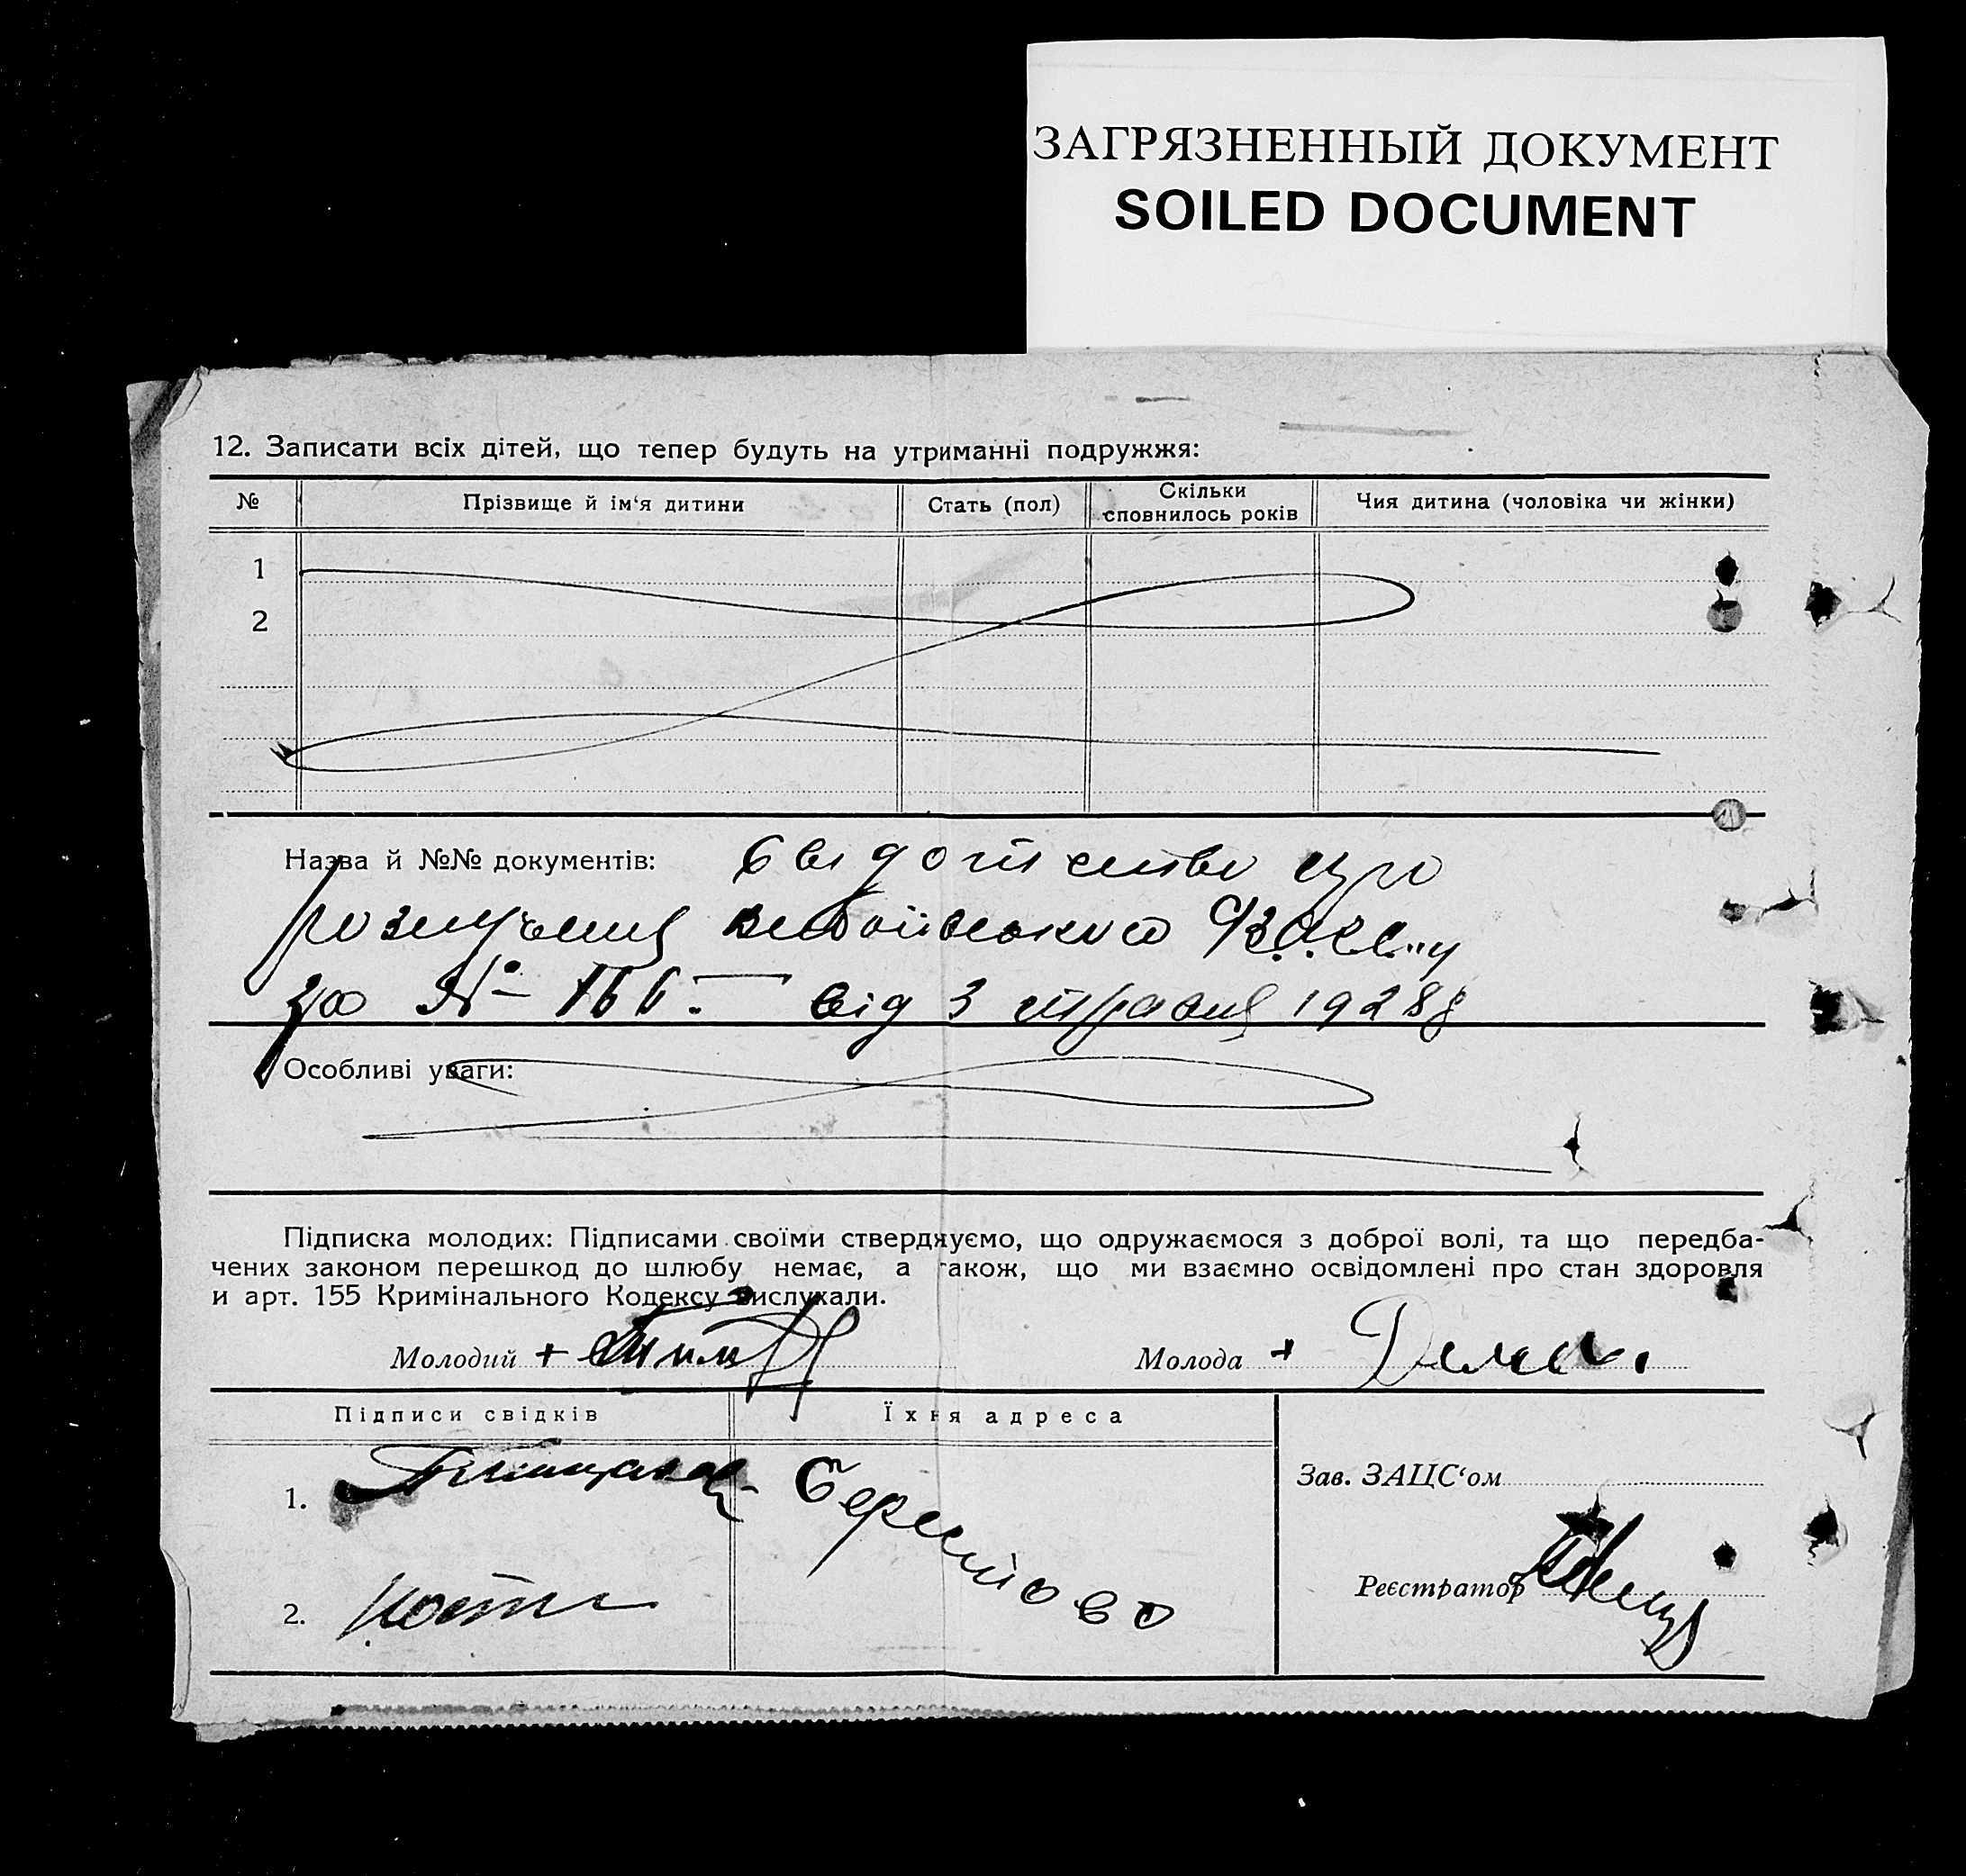 ЗАГРЯЗНЕННЫЙ ДОКУМЕНТ
SOILED DOCUMENT
12. Записати всіх дітей, що тепер будуть на утриманні подружжя:
№ Прізвище й ім‘я дитини Стать (пол) Скільки сповнилось років Чия дитина (чоловіка чи жінки)
1
2
Назва й №№ документів: Свидотство про
розлучення
за № від 3 травня 1928
Особливі уваги:
Підписка молодих: Підписами своїми стверджуємо, що одружаємося з доброї волі, та що передба-
чених законом перешкод до шлюбу немає, а також, що ми взаємно освідомлені про стан здоровля
и арт. 155 Кримінального Кодексу вислухали.
Молодий + Молода +
Підписи свідків Їхня адреса
Зав. ЗАЦС‘ом
1.
Реєстратор
2.